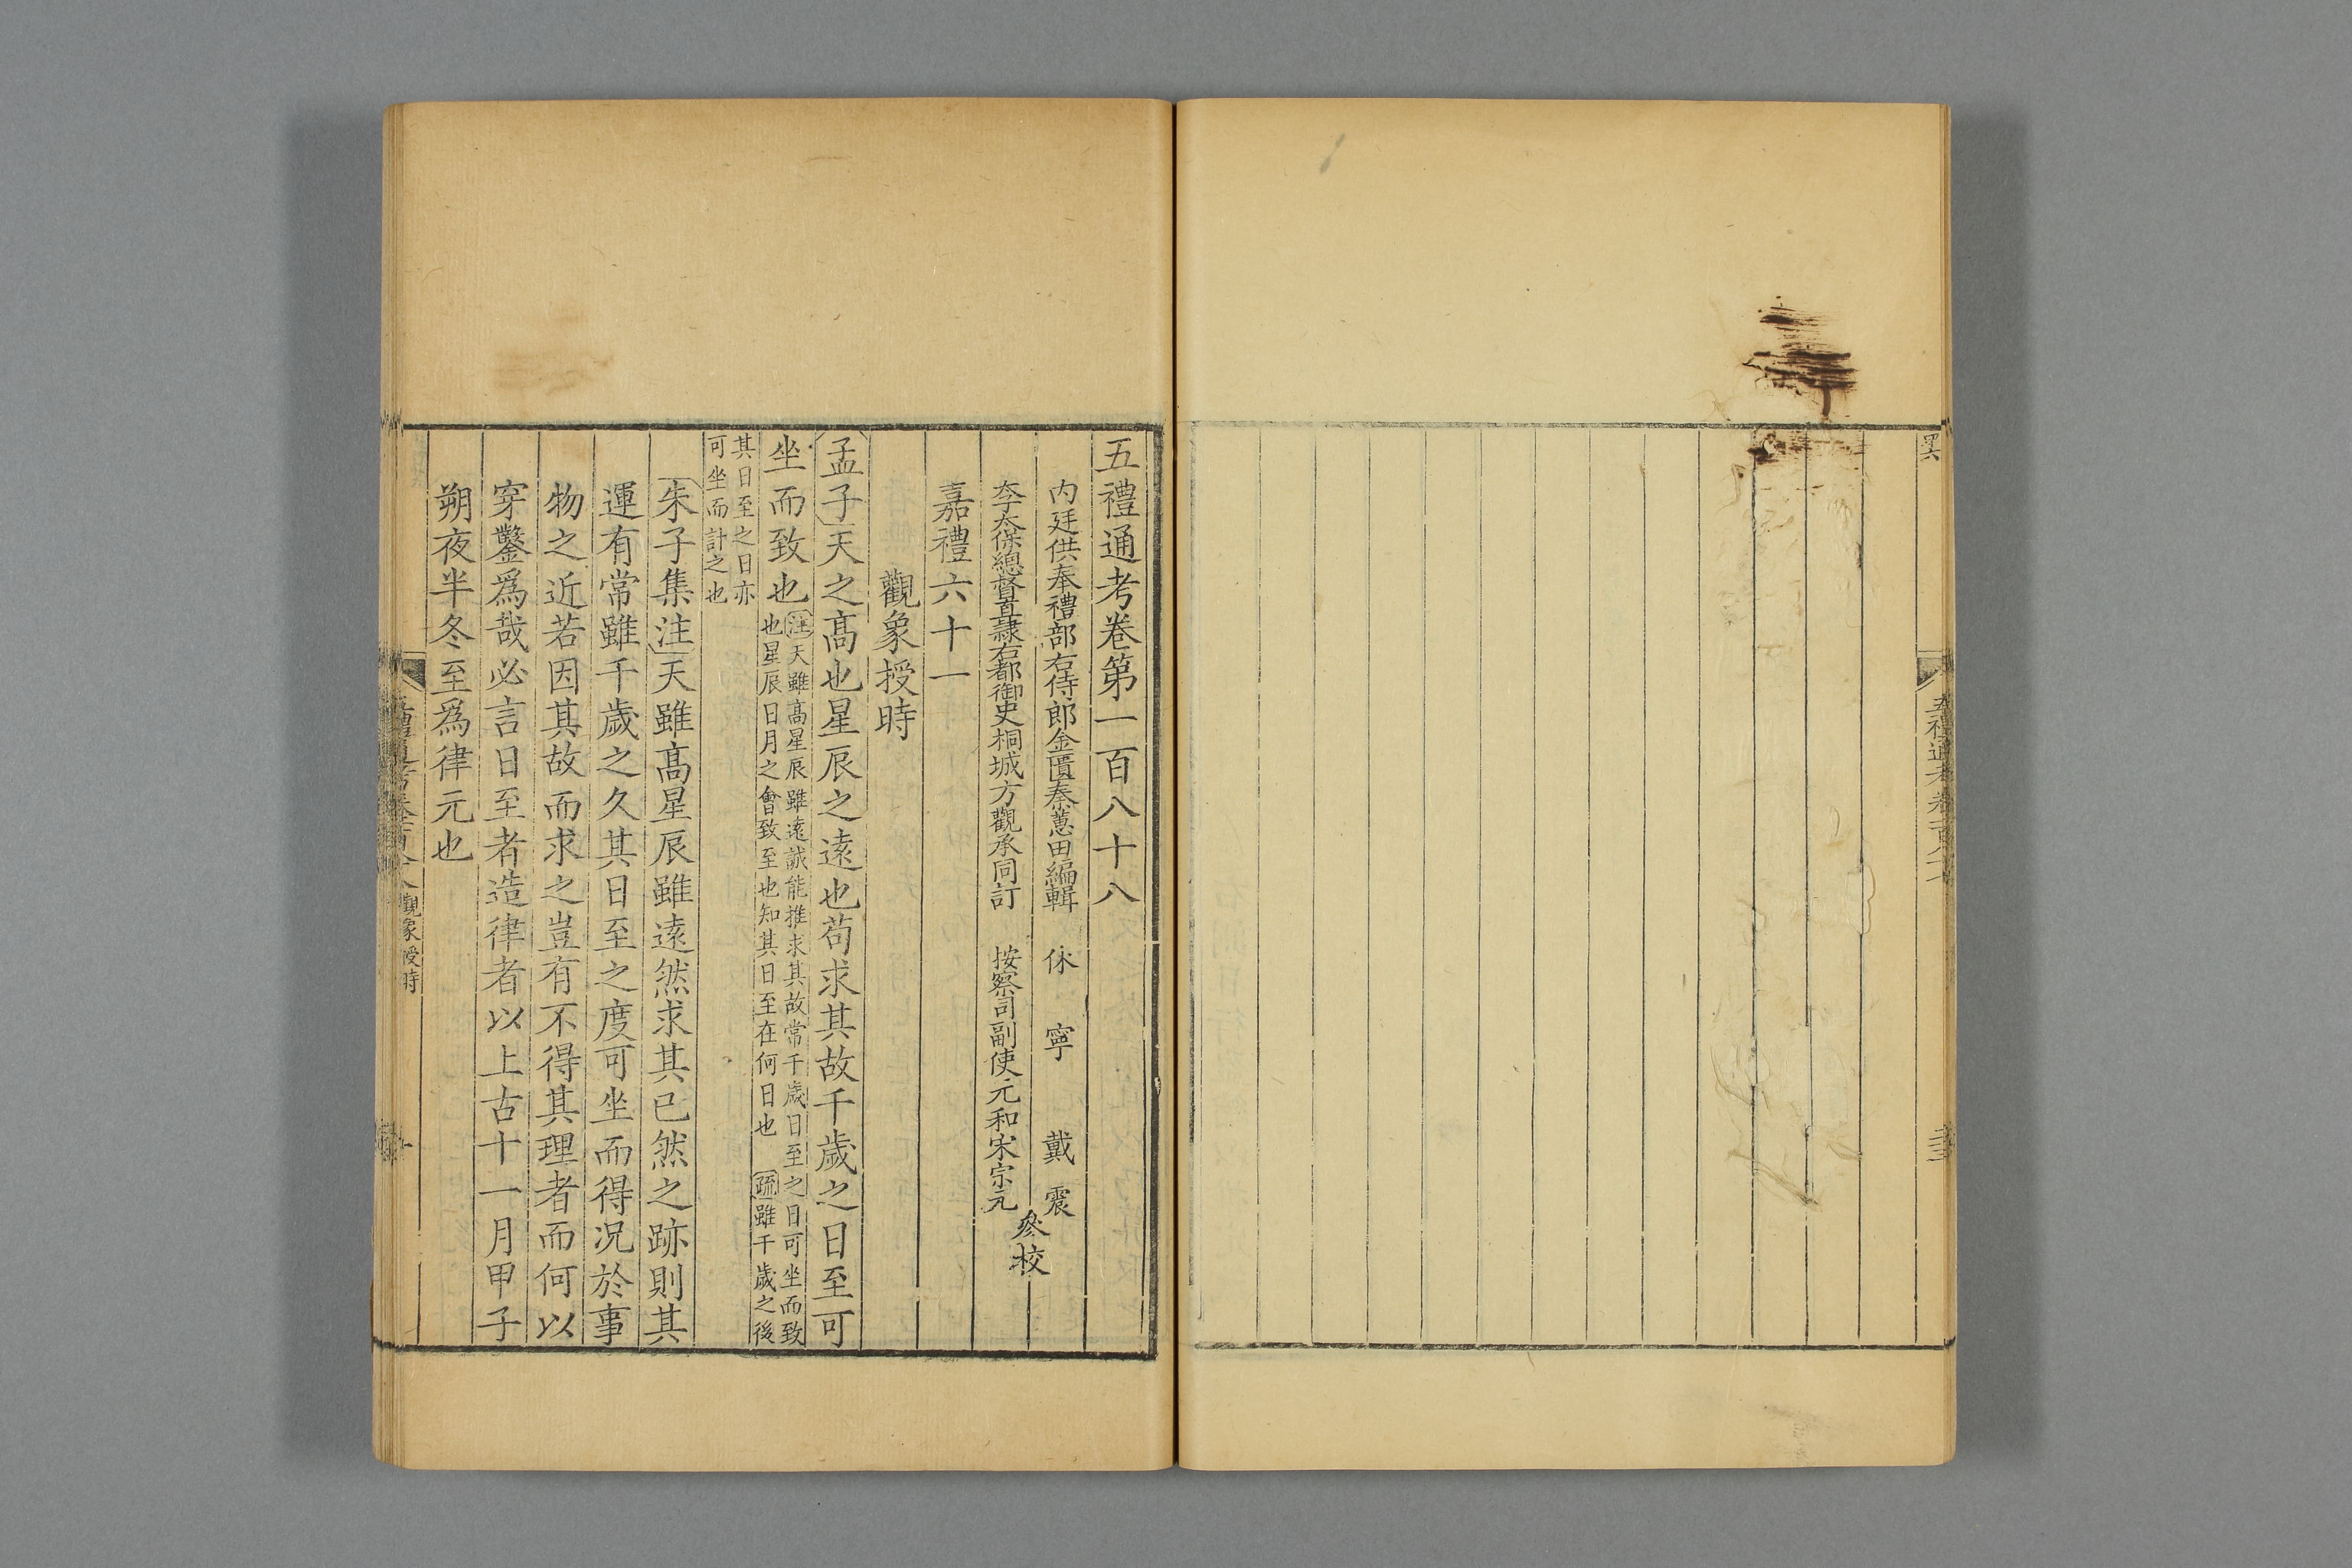 五禮通考卷百八十七
五禮通考卷第一百八十八
內廷供奉禮部右侍郎金匱秦蕙田編輯　休寧戴震
太子太保總督直隸右都御史桐城方觀承同訂　按察司副使元和宋宗元
參校
嘉禮六十一
觀象授時
孟子天之高也星辰之遠也苟求其故千歲之日至可
坐而致也
注天雖高星辰雖遠誠能推求其故常千歲日至之日可坐而致
也星辰日月之會致至也知其日至在何日也　疏雖千歲之後
其日至之日亦
可坐而計之也
朱子集注天雖高星辰雖遠然求其已然之跡則其
運有常雖千歲之久其日至之度可坐而得況於事
物之近若因其故而求之豈有不得其理者而何以
穿鑿爲哉必言日至者造律者以上古十一月甲子
朔夜半冬至爲律元也
觀象授時
一